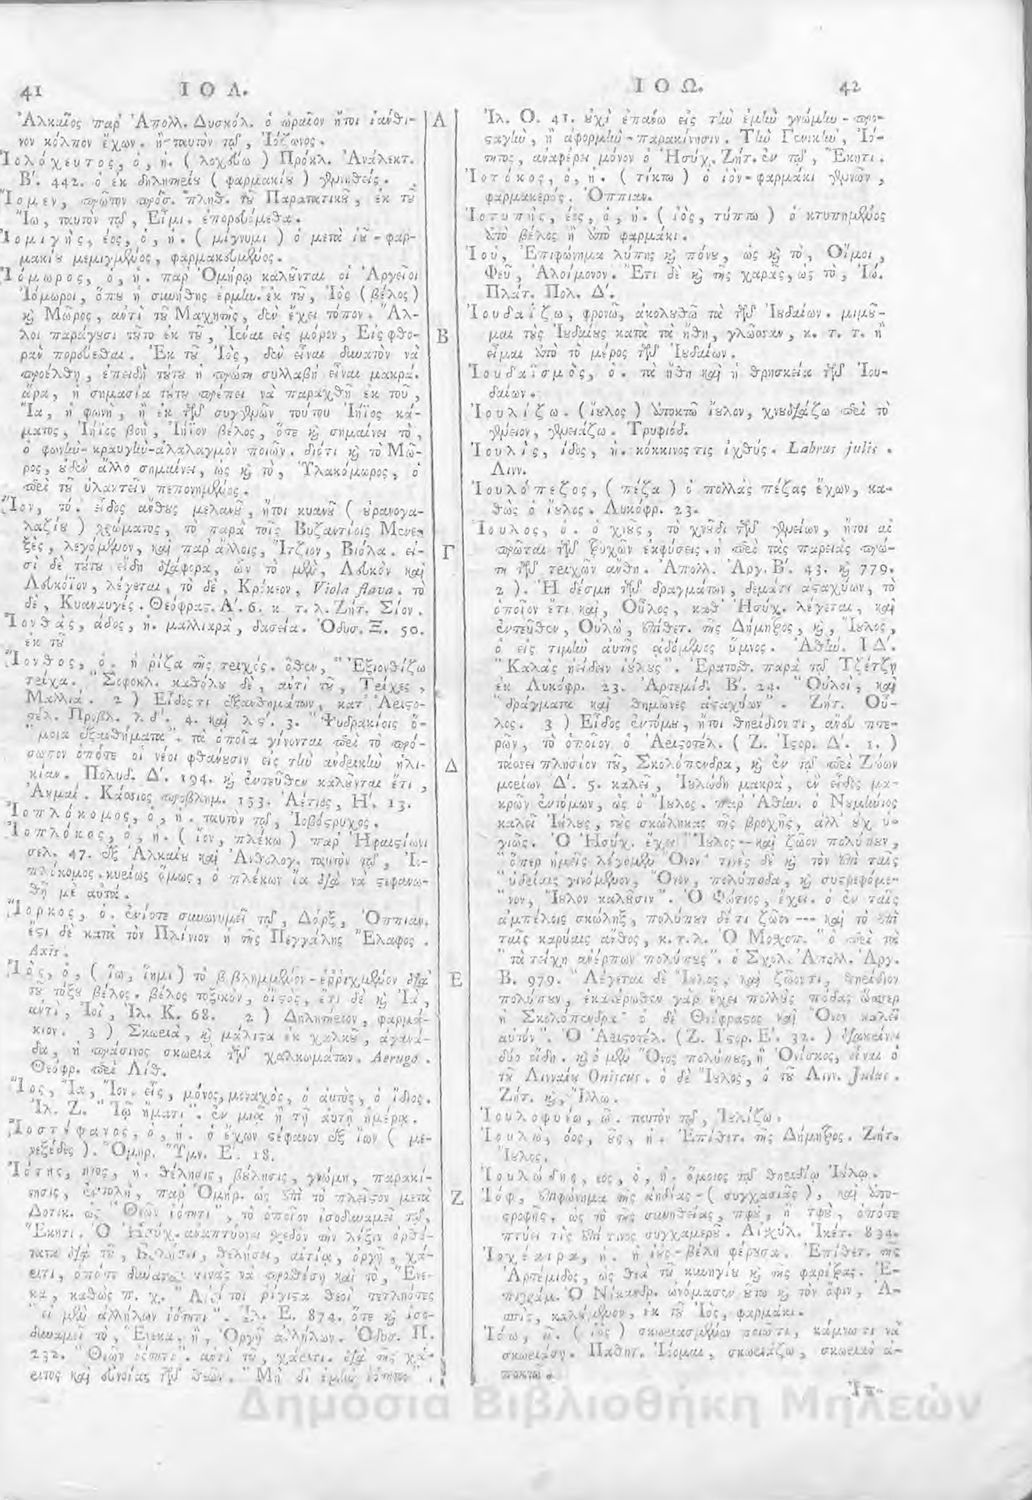 41 Ι Ο Λ.
Ἀλκαῖος παρ' Ἀπολλ. Δυσκόλ. ὁ ὡραῖον ἤτοι ἰάνθι-
νον κόλπον ἔχων. ἢ ταυτὸν τῷ, Ἰόζωνος.
Ἰολόχευτος, ὁ, ἡ. ( λοχεύω ) Πρόκλ. Ἀνάλεκτ.
Β'. 442. ὁ ἐκ δηλητηρίου ( φαρμακίου ) γεννηθείς.
Ἴομεν, πρῶτον πρόσ. πληθ. τοῦ Παρατατικοῦ, ἐκ τοῦ
Ἴω, ταυτὸν τῷ, Εἶμι. ἐπορευόμεθα.
Ἰομιγής, έος, ὁ, ἡ. ( μίγνυμι ) ὁ μετὰ ἰοῦ - φαρ-
μακίου μεμιγμένος, φαρμακευμένος.
Ἰόμωρος, ὁ, ἡ. παρ' Ὁμήρῳ καλοῦνται οἱ Ἀργεῖοι
Ἰόμωροι, ὅπου ἡ συνήθης ἑρμην. ἐκ τοῦ, Ἰὸς ( βέλος )
καὶ Μῶρος, ἀντὶ τοῦ Μαχητής, δὲν ἔχει τόπον. Ἄλ-
λοι παράγουσι τοῦτο ἐκ τοῦ, Ἰέναι εἰς μόρον, Εἰς φθο-
ρὰν πορεύεσθαι. Ἐκ τοῦ Ἰὸς, δὲν εἶναι δυνατὸν νὰ
προέλθῃ, ἐπειδὴ τούτου ἡ πρώτη συλλαβὴ εἶναι μακρά.
ἄρα, ἡ σημασία τούτου πρέπει νὰ παραχθῇ ἐκ τοῦ,
Ἴα, ἡ φωνή, ἢ ἐκ τῶν συγγενῶν τούτου Ἰήϊος κά-
ματος, Ἰήϊος βοή, Ἰήϊον βέλος, ὅτε καὶ σημαίνει τὸ,
ὁ φωνὴν - κραυγὴν - ἀλαλαγμὸν ποιῶν. διότι καὶ τὸ Μῶ-
ρος, οὐδὲν ἄλλο σημαίνει, ὡς καὶ τὸ, Ὑλακόμωρος, ὁ
περὶ τοῦ ὑλακτεῖν πεπονημένος.
Ἴον, τό. εἶδος ἄνθους μελανοῦ, ἤτοι κυανοῦ ( οὐρανογα-
λαζίου ) χρώματος, τὸ παρὰ τοῖς Βυζαντίοις Μενε-
ξὲς, λεγόμενον, καὶ παρ' ἄλλοις, Ἴτζιον, Βιόλα. εἰ-
σὶ δὲ τούτου εἴδη διάφορα, ὧν τὸ μὲν, Λευκὸν καὶ
Λευκόϊον, λέγεται, τὸ δὲ, Κρόκεον, Viola flava. τὸ
δὲ, Κυαναυγές. Θεόφρας. Α'. 6. κ. τ. λ. Ζήτ. Σίον.
Ἰονθάς, άδος, ἡ. μαλλιαρά, δασεῖα. Ὀδυσ. Ξ. 50.
ἐκ τοῦ
Ἴονθος, ὁ. ἡ ῥίζα τῆς τριχός. ὅθεν, " Ἐξιονθίζω
τρίχα. " Σοφοκλ. καθόλου δὲ, ἀντὶ τοῦ, Τρίχες,
Μαλλιά. 2 ) Εἶδός τι ἐξανθημάτων, κατ' Ἀριςο-
τέλ. Προβλ. λδ'. 4. καὶ λς'. 3. " Ψυδρακίοις ὅ-
" μοια ἐξανθήματα ". τὰ ὁποῖα γίνονται περὶ τὸ πρό-
σωπον ὁπότε οἱ νέοι φθάνουσιν εἰς τὴν ἀνδρικὴν ἡλι-
κίαν. Πολυδ. Δ'. 194. καὶ ἐντεῦθεν καλοῦνται ἔτι,
Ἀκμαί. Κάσσιος προβλημ. 153. Ἀέτιος, Η'. 13.
Ἰοπλόκομος, ὁ, ἡ. ταυτὸν τῷ, Ἰοβόςρυχος.
Ἰοπλόκος, ὁ, ἡ. ( ἴον, πλέκω ) παρ' Ἡφαιςίωνι
σελ. 47. ἐξ Ἀλκαίου καὶ Ἀνθολογ. ταυτὸν τῷ, Ἰ-
πλόκομος. κυρίως ὅμως, ὁ πλέκων ἴα διὰ νὰ ςεφανω-
θῇ μὲ αὐτά.
Ἴορκος, ὁ. ἐνίοτε συνωνυμεῖ τῷ, Δόρξ, Ὀππιαν.
ἔςι δὲ κατὰ τὸν Πλίνιον ἡ τῆς Πεγγάλης Ἔλαφος.
Axis.
Ἰὸς, ὁ, ( ἴω, ἵημι ) τὸ βεβλημένον - ἐρριχμένον διὰ
τοῦ τόξου βέλος. βέλος τοξικὸν, ὀϊςός, ἔτι δὲ καὶ Ἰὰ,
ἀντὶ, Ἰοὶ, Ἰλ. Κ. 68. 2 ) Δηλητήριον, φαρμά-
κιον. 3 ) Σκωρία, καὶ μάλιςα ἐκ χαλκοῦ, ἀγανά-
δα, ἡ πράσινος σκωρία τῶν χαλκωμάτων. Aerugo.
Θεόφρ. περὶ Λίθ.
Ἴος, Ἴα, Ἴον. εἷς, μόνος, μοναχὸς, ὁ αὐτὸς, ὁ ἴδιος.
Ἰλ. Ζ. " Ἰῷ ἤματι ". ἐν μιᾷ ἢ τῇ αὐτῇ ἡμέρᾳ.
Ἰοςέφανος, ὁ, ἡ. ὁ ἔχων ςέφανον ἐξ ἴων ( με-
νεξέδες ). Ὁμηρ. Ὕμν. Ε'. 18.
Ἰότης, ητος, ἡ. θέλησις, βούλησις, γνώμη, παρακί-
νησις, ἐντολή, παρ' Ὁμήρ. ὡς ἐπὶ τὸ πλεῖςον μετὰ
Δοτικ. ὡς " Θεῶν ἰότητι ", τὸ ὁποῖον ἰσοδυναμεῖ τῷ,
Ἕκητι. Ὁ Ἡσύχ. ἀναπτύσσει σχεδὸν τὴν λέξιν ὀρθό-
τατα διὰ τοῦ, Βουλήσει, θελήσει, αἰτίᾳ, ὀργῇ, χά-
ριτι, ὁπότε δύναταί τινας νὰ προσθέσῃ καὶ τὸ, Ἕνε-
κα, καθὼς π. χ. " Αἰεί τοι ῥίγιςα θεοὶ τετληότες
" εἰμὲν ἀλλήλων ἰότητι ". Ἰλ. Ε. 874. ὅτε καὶ ἰσο-
δυναμεῖ τὸ, Ἕνεκα, ἢ, Ὀργῇ ἀλλήλων. Ὀδυσ. Π.
232. " Θεῶν ἰότητι ". ἀντὶ τοῦ, χάριτι. διὰ τῆς χά-
ριτος καὶ εὐνοίας τῶν θεῶν. " Μὴ δι' ἐμὴν ἰότητα ".
Α
Β
Γ
Δ
Ε
Ζ
Ι Ο Ω. 42
Ἰλ. Ο. 41. οὐχὶ ἐπάνω εἰς τὴν ἐμὴν γνώμην - προ-
ςαγὴν, ἢ ἀφορμὴν - παρακίνησιν. Τὴν Γενικὴν, Ἰό-
τητος, ἀναφέρει μόνον ὁ Ἡσύχ. Ζήτ. ἐν τῷ, Ἕκητι.
Ἰοτόκος, ὁ, ἡ. ( τίκτω ) ὁ ἰὸν - φαρμάκι γεννῶν,
φαρμακερός. Ὀππιαν.
Ἰοτυπής, έος, ὁ, ἡ. ( ἰὸς, τύπτω ) ὁ κτυπημένος
ἀπὸ βέλος ἢ ἀπὸ φαρμάκι.
Ἰού, Ἐπιφώνημα λύπης καὶ πόνου, ὡς καὶ τὸ, Οἴμοι,
Φεῦ, Ἀλοίμονον. Ἔτι δὲ καὶ τῆς χαρᾶς, ὡς τὸ, Ἰώ.
Πλάτ. Πολ. Δ'.
Ἰουδαΐζω, φρονῶ, ἀκολουθῶ τὰ τῶν Ἰουδαίων. μιμοῦ-
μαι τοὺς Ἰουδαίους κατὰ τὰ ἤθη, γλῶσσαν, κ. τ. τ. ἢ
εἶμαι ἀπὸ τὸ μέρος τῶν Ἰουδαίων.
Ἰουδαϊσμὸς, ὁ. τὰ ἤθη καὶ ἡ θρησκεία τῶν Ἰου-
δαίων.
Ἰουλίζω. ( ἴουλος ) ἀποκτῶ ἴουλον, χνουδιάζω περὶ τὸ
γένειον, γενειάζω. Τρυφιόδ.
Ἰουλὶς, ίδος, ἡ. κόκκινός τις ἰχθύς. Labrus julis.
Λινν.
Ἰουλόπεζος, ( πέζα ) ὁ πολλὰς πέζας ἔχων, κα-
θὼς ὁ ἴουλος. Λυκόφρ. 23.
Ἴουλος, ὁ. ὁ χνοῦς, τὸ χνοῦδι τῶν γενείων, ἤτοι αἱ
πρῶται τῶν τριχῶν ἐκφύσεις. ἡ περὶ τὰς παρειὰς πρώ-
τη τῶν τριχῶν ἄνθη. Ἀπολλ. Ἀργ. Β'. 43. καὶ 779.
2 ). Ἡ δέσμη τῶν δραγμάτων, δεμάτι ἀςαχύων, τὸ
ὁποῖον ἔτι καὶ, Οὖλος, καθ' Ἡσύχ. λέγεται, καὶ
ἐντεῦθεν, Οὐλώ, ἐπίθετ. τῆς Δήμητρος, καὶ, Ἴουλος,
ὁ εἰς τιμὴν αὐτῆς ᾀδόμενος ὕμνος. Ἀθήν. ΙΔ'.
" Καλὰς ἤειδεν ἰούλους ". Ἐρατοσθ. παρὰ τῷ Τζέτζῃ
ἐκ Λυκόφρ. 23. Ἀρτεμίδ. Β'. 24. " Οὖλοι, καὶ
" δράγματα καὶ θημῶνες ἀςαχύων ". Ζήτ. Οὖ-
λος. 3 ) Εἶδος ἐντόμου, ἤτοι θηρίδιόν τι, ἄνευ πτε-
ρῶν, τὸ ὁποῖον ὁ Ἀριςοτέλ. ( Ζ. Ἱςορ. Δ'. 1. )
τάσσει πλησίον τοῦ, Σκολόπενδρα, καὶ ἐν τῷ περὶ Ζώων
μορίων Δ'. 5. καλεῖ, Ἰουλώδη μακρά, ἐν εἶδος μα-
κρῶν ἐντόμων, ὡς ὁ Ἴουλος. παρ' Ἀθήν. ὁ Νουμήνιος
καλεῖ Ἰούλους, τοὺς σκώληκας τῆς βροχῆς, ἀλλ' οὐχ ὑ-
γιῶς. Ὁ Ἡσύχ. ἔχει " Ἴουλος -- καὶ ζῶον πολύπουν,
" ὅπερ ἡμεῖς λέγομεν Ὄνον· τινὲς δὲ καὶ τὸν ἐπὶ ταῖς
" ὑδρίαις γινόμενον, Ὄνον, πολύποδα, καὶ συςρεφόμε-
" νον, Ἴουλον καλοῦσιν ". Ὁ Φώτιος, ἔχει. ὁ ἐν ταῖς
ἀμπέλοις σκώληξ, πολύπουν δέ τι ζῶον --- καὶ τὸ ἐπὶ
ταῖς καρύαις ἄνθος, κ. τ. λ. Ὁ Μοσχοπ. " ὁ περὶ τὰ
" τὰ τείχη ἀνέρπων πολύπους ". ὁ Σχολ. Ἀπολλ. Ἀργ.
Β. 979. " Λέγεται δὲ Ἴουλος, καὶ ζῶόν τι, θηρίδιον
πολύπουν, ἑκατέρωθεν γὰρ ἔχει πολλοὺς πόδας ὥσπερ
ἡ Σκολόπενδρα· ὁ δὲ Θεόφραςος καὶ Ὄνον καλεῖ
αὐτόν ". Ὁ Ἀριςοτέλ. ( Ζ. Ἱςορ. Ε'. 32. ) διακρίνει
δύο εἴδη. καὶ ὁ μὲν Ὄνος πολύπους, ἢ Ὀνίσκος, εἶναι ὁ
τοῦ Λινναίου Oniscus. ὁ δὲ Ἴουλος, ὁ τοῦ Λινν. Julus.
Ζήτ. καὶ, Ἴλλω.
Ἰουλοφυέω, ῶ. ταυτὸν τῷ, Ἰουλίζω.
Ἰουλώ, όος, οῦς, ἡ. Ἐπίθετ. τῆς Δήμητρος. Ζήτ.
Ἴουλος.
Ἰουλώδης, εος, ὁ, ἡ. ὅμοιος τῷ θηριδίῳ Ἰούλῳ.
Ἰόφ, ἐπιφώνημα τῆς ἀηδίας - ( συγχασιᾶς ), καὶ ἀπο-
ςροφῆς. ὡς τὸ τῆς συνηθείας, πφού, ἢ τφού, ὁπότε
πτύει τις ἐπί τινος συγχαμεροῦ. Αἰσχύλ. Ἱκέτ. 834.
Ἰοχέαιρα, ἡ. ἡ ἰοὺς - βέλη φέρουσα. Ἐπίθετ. τῆς
Ἀρτέμιδος, ὡς θεᾶς τοῦ κυνηγίου καὶ τῆς φαρέτρας. Ἐ-
πιγράμ. Ὁ Νίκανδρ. ὠνόμασεν οὕτω καὶ τὸν ὄφιν, Ἀ-
σπὶς, καλούμενον, ἐκ τοῦ Ἰὸς, φαρμάκι.
Ἰόω, ῶ. ( ἰὸς ) σκωριασμένον ποιῶ τι, κάμνω τι νὰ
σκωριάσῃ. Παθητ. Ἰόομαι, σκωριάζω, σκωρίαν ἀ-
ποκτῶ.
Ἰπ-
Δημόσια Βιβλιοθήκη Μηλεών